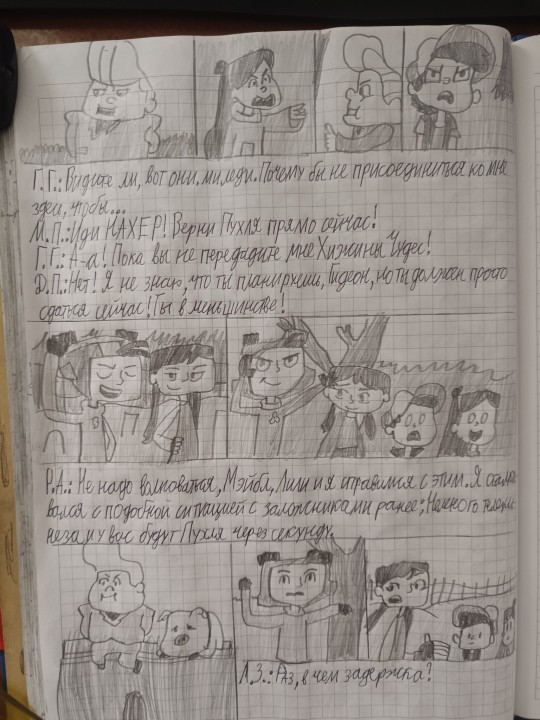 Г.Г.: Видите ли, вот они, миледи. Почему бы не присоединиться ко мне
здеи, чтобы...
М.П.: Иди НАХЕР! Верни Пухля прямо сейчас!
Г.Г.: А-а! Пока вы не передадите мне Хижины Чудес!
Д.П.: Нет! Я не знаю, что ты планируешь, Гидеон, но ты должен просто
сдаться сейчас! Ты в меньшинстве!
Р.А.: Не надо волноваться, Мэйбл, Лили и я справимся с этим. Я сталки
вался с подобной ситуацией с заложниками ранее; Немного телеки
неза и у вас будут Пухля через секунду.
Л.З.: Раз, в чем задержка?